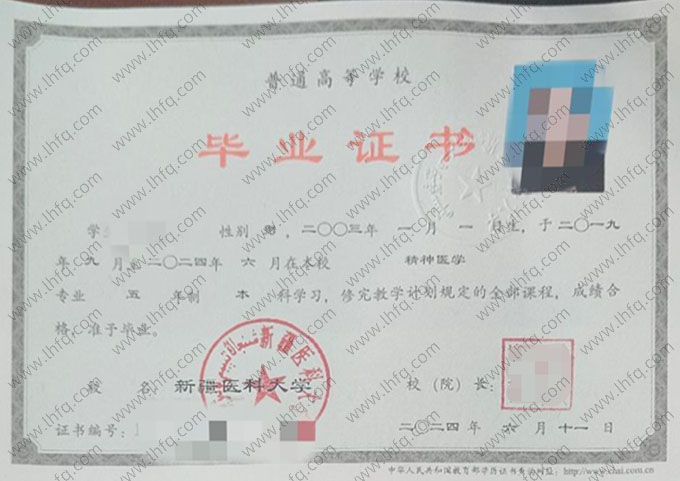 普通高等学校
毕业证书
学生 性别 男，二〇〇三年 一月 一日生，于二〇一九
年九月至二〇二四年 六月在本校 精神医学
专业 五 年制 本 科学习，修完教学计划规定的全部课程，成绩合
格，准予毕业。
新疆医科大学
校 名 新疆医科大学 校（院）长：
证书编号： 二〇二四年 六月十一日
中华人民共和国教育部学历证书查询网址：http://www.chsi.com.cn
www.lhfq.com